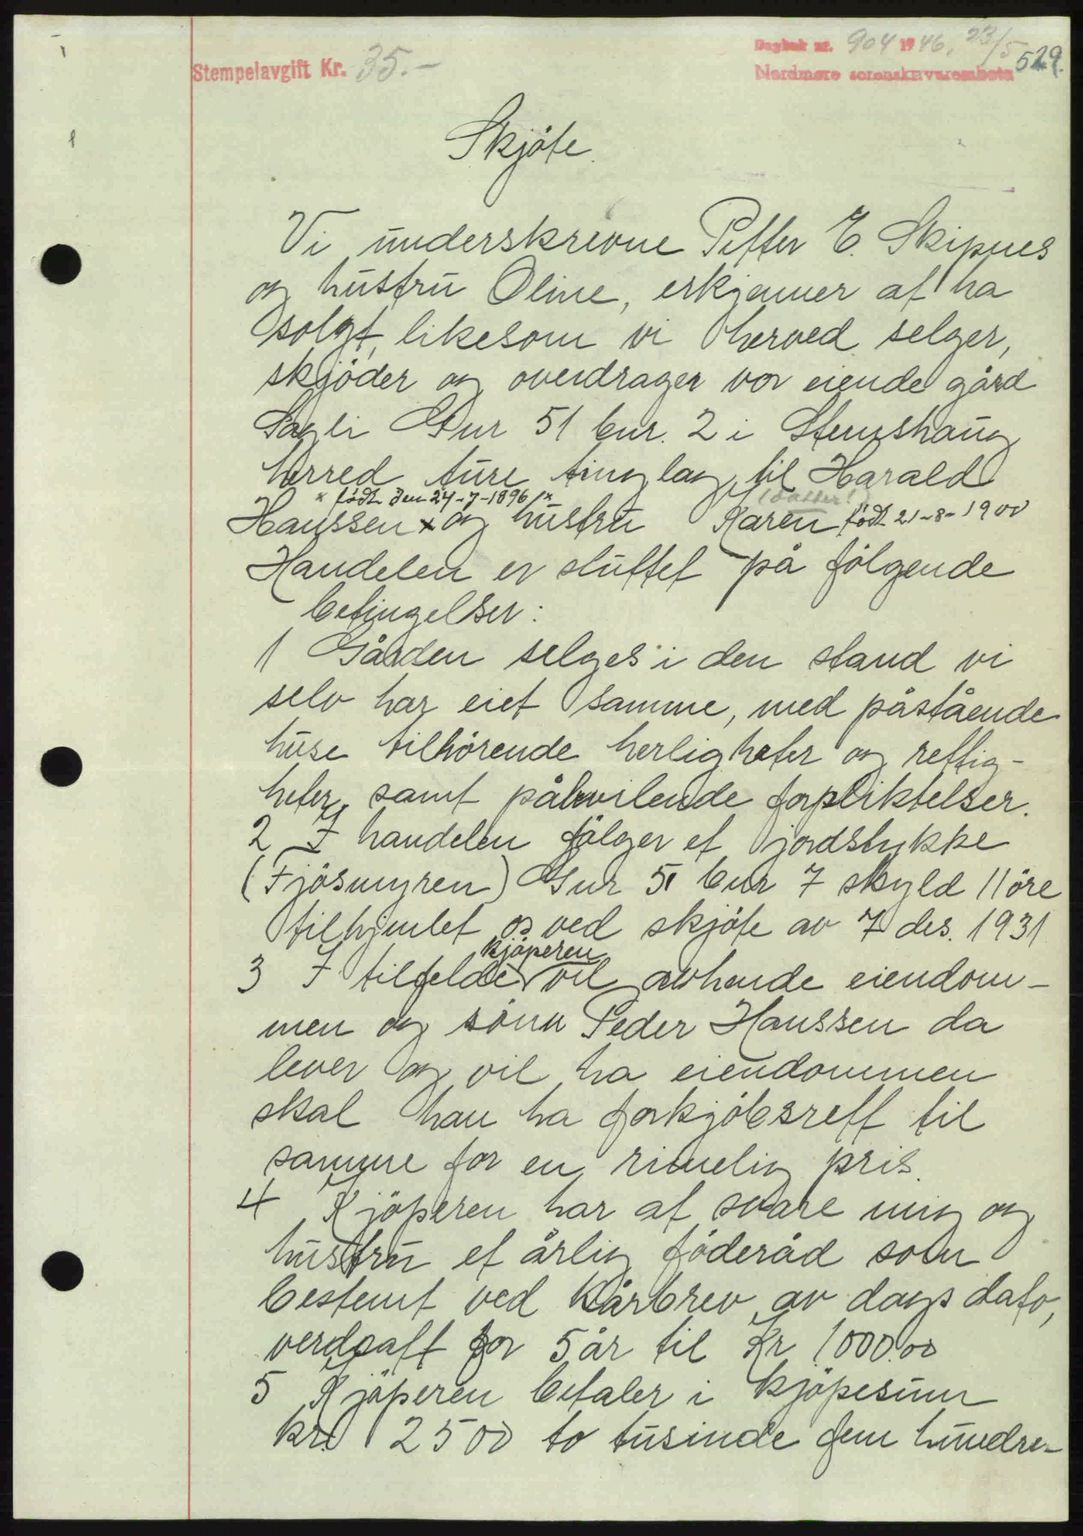 Stempelavgift Kr. 35.—
Dagbok nr. 904 1946, 23/5
Nordmøre sorenskrivarembete
529.
Skjöte.
Vi underskrevne Petter E. Skipnes
og hustru Oline, erkjenner at ha
solgt, likesom vi herved selger,
skjöder og overdrager vor eiende gård
Sagli Gnr 51 bnr. 2 i Stemshaug
herred ture tinglag, til Harald
* født den 24-7-1896 /* (datter!)
Hanssen x og hustru Karen født 21-8-1900
Handelen er sluttet på fölgende
betingelser:
1 Gården selges i den stand vi
selv har eiet samme, med påstående
huse tilhörende herligheter og rettig-
heter, samt påhvilende forpliktelser.
2 I handelen fölger et jordstykke
(Fjösmyren) Gnr 51 bnr 7 skyld 11 öre
tilhjmlet os ved skjöte av 7 des. 1931
kjöperen
3 I tilfelde vil avhende eiendom-
men og sönn Peder Hanssen da
lever og vil ha eiendommen
skal han ha forkjöbsrett til
samme for en rimelig pris.
4 Kjöperen har at svare mig og
hustru et årlig föderåd som
bestemt ved Kårbrev av dags dato,
verdsatt for 5 år til Kr 1000.00
5 Kjöperen betaler i kjöpesum
kr. 2500 to tusinde fem hundre-